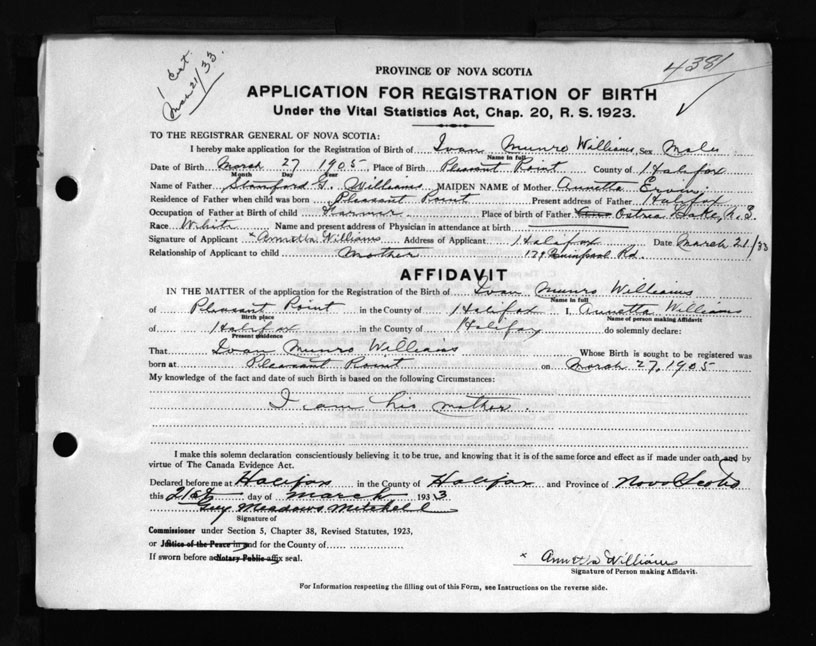 1 Cert.
Mar 21/33.
4381
PROVINCE OF NOVA SCOTIA
APPLICATION FOR REGISTRATION OF BIRTH
Under the Vital Statistics Act, Chap. 20, R. S. 1923.
TO THE REGISTRAR GENERAL OF NOVA SCOTIA:
I hereby make application for the Registration of Birth of Ivan Munro Williams, Sex Male
Name in full
Date of Birth March 27 1905 Place of Birth Pleasant Point County of Halifax
Month Day Year
Name of Father Stanford G. Williams MAIDEN NAME of Mother Annetta Ervin
Residence of Father when child was born Pleasant Point Present address of Father Halifax
Occupation of Father at Birth of child Farmer Place of birth of Father Ostrea Lake, N.S.
Race White Name and present address of Physician in attendance at birth
Signature of Applicant x Annetta Williams Address of Applicant Halifax Date March 21/33
Relationship of Applicant to child Mother 179 Rd.
AFFIDAVIT
IN THE MATTER of the application for the Registration of the Birth of Ivan Munro Williams
Name in full
of Pleasant Point in the County of Halifax I, Annetta Williams
Birth place Name of person making Affidavit
of Halifax in the County of Halifax do solemnly declare:
Present residence
That Ivan Munro Williams Whose Birth is sought to be registered was
born at Pleasant Point on March 27, 1905
My knowledge of the fact and date of such Birth is based on the following Circumstances:
I am his mother.
I make this solemn declaration conscientiously believing it to be true, and knowing that it is of the same force and effect as if made under oath and by
virtue of The Canada Evidence Act.
Declared before me at Halifax in the County of Halifax and Province of Nova Scotia
this 21st day of March 1933
Guy Meadows Mitchell
Signature of
Commissioner under Section 5, Chapter 38, Revised Statutes, 1923,
or Justice of the Peace in and for the County of
If sworn before a Notary Public affix seal.
x Annetta Williams
Signature of Person making Affidavit.
For Information respecting the filling out of this Form, see Instructions on the reverse side.